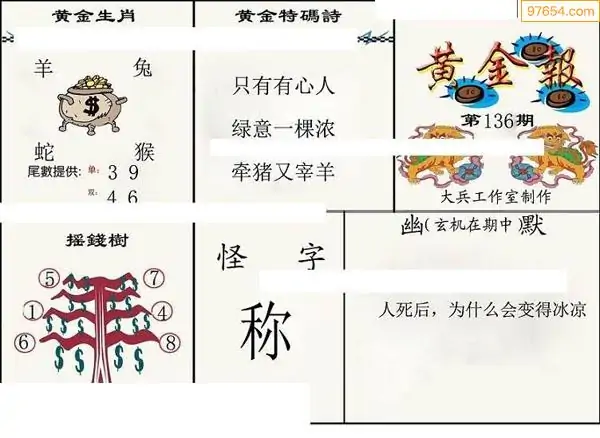 97654.com
黄金生肖
羊 兔
$
蛇 猴
尾數提供: 单: 3 9
双: 4 6
黄金特碼詩
只有有心人
绿意一棵浓
牵猪又宰羊
黄金報
第136期
大兵工作室制作
摇錢樹
⑤ ⑦
① ④
⑥ ⑧
怪 字
称
幽(玄机在期中)默
人死后，为什么会变得冰凉